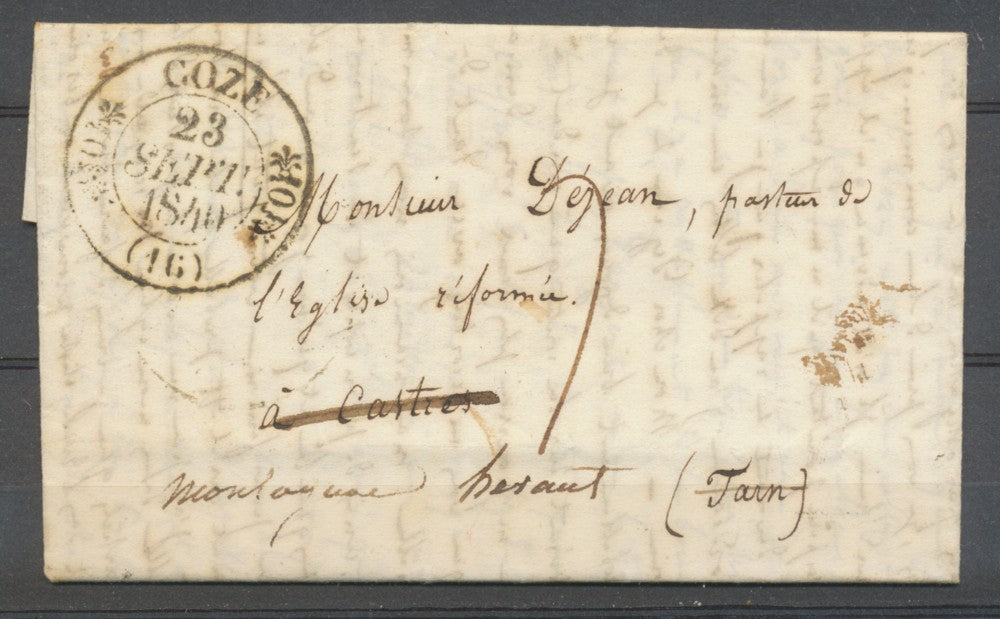 COZE
23
SEPT.
1840
(16)
Monsieur Dejean, pasteur de
l'Eglise réformée.
à Castres
montagnac heraut (Tarn)
7